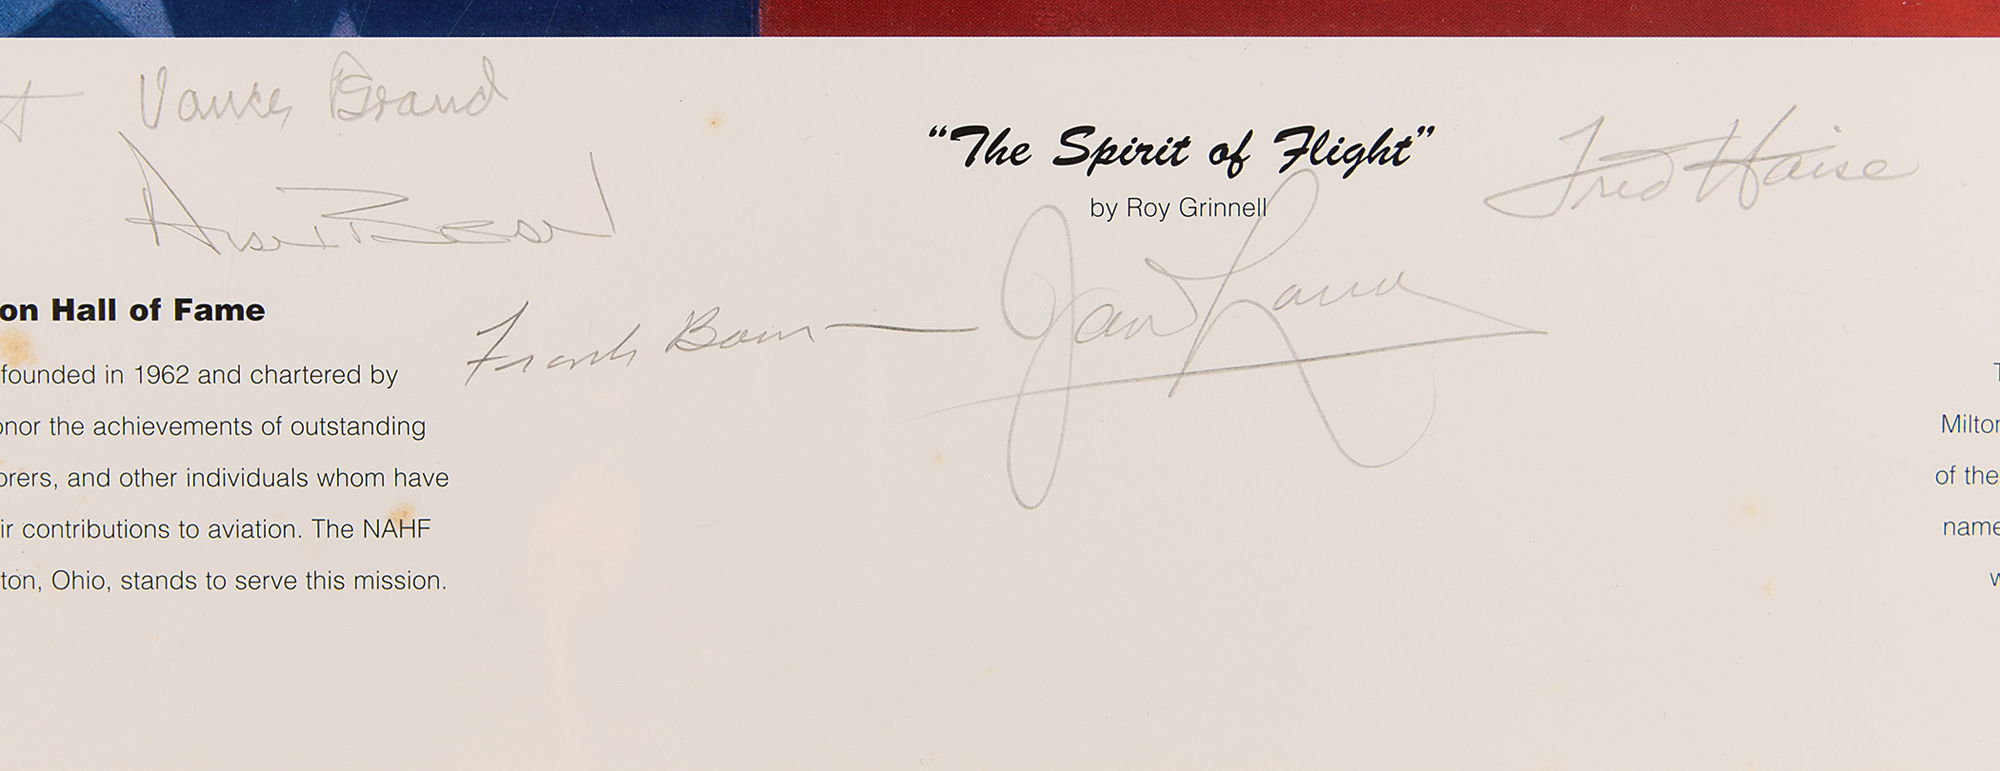 Vance Brand
"The Spirit of Flight"
by Roy Grinnell
Fred Haise
Alan Bean
on Hall of Fame
Frank Borman
founded in 1962 and chartered by
onor the achievements of outstanding
orers, and other individuals whom have
ir contributions to aviation. The NAHF
ton, Ohio, stands to serve this mission.
T
Milton
of the
name
w